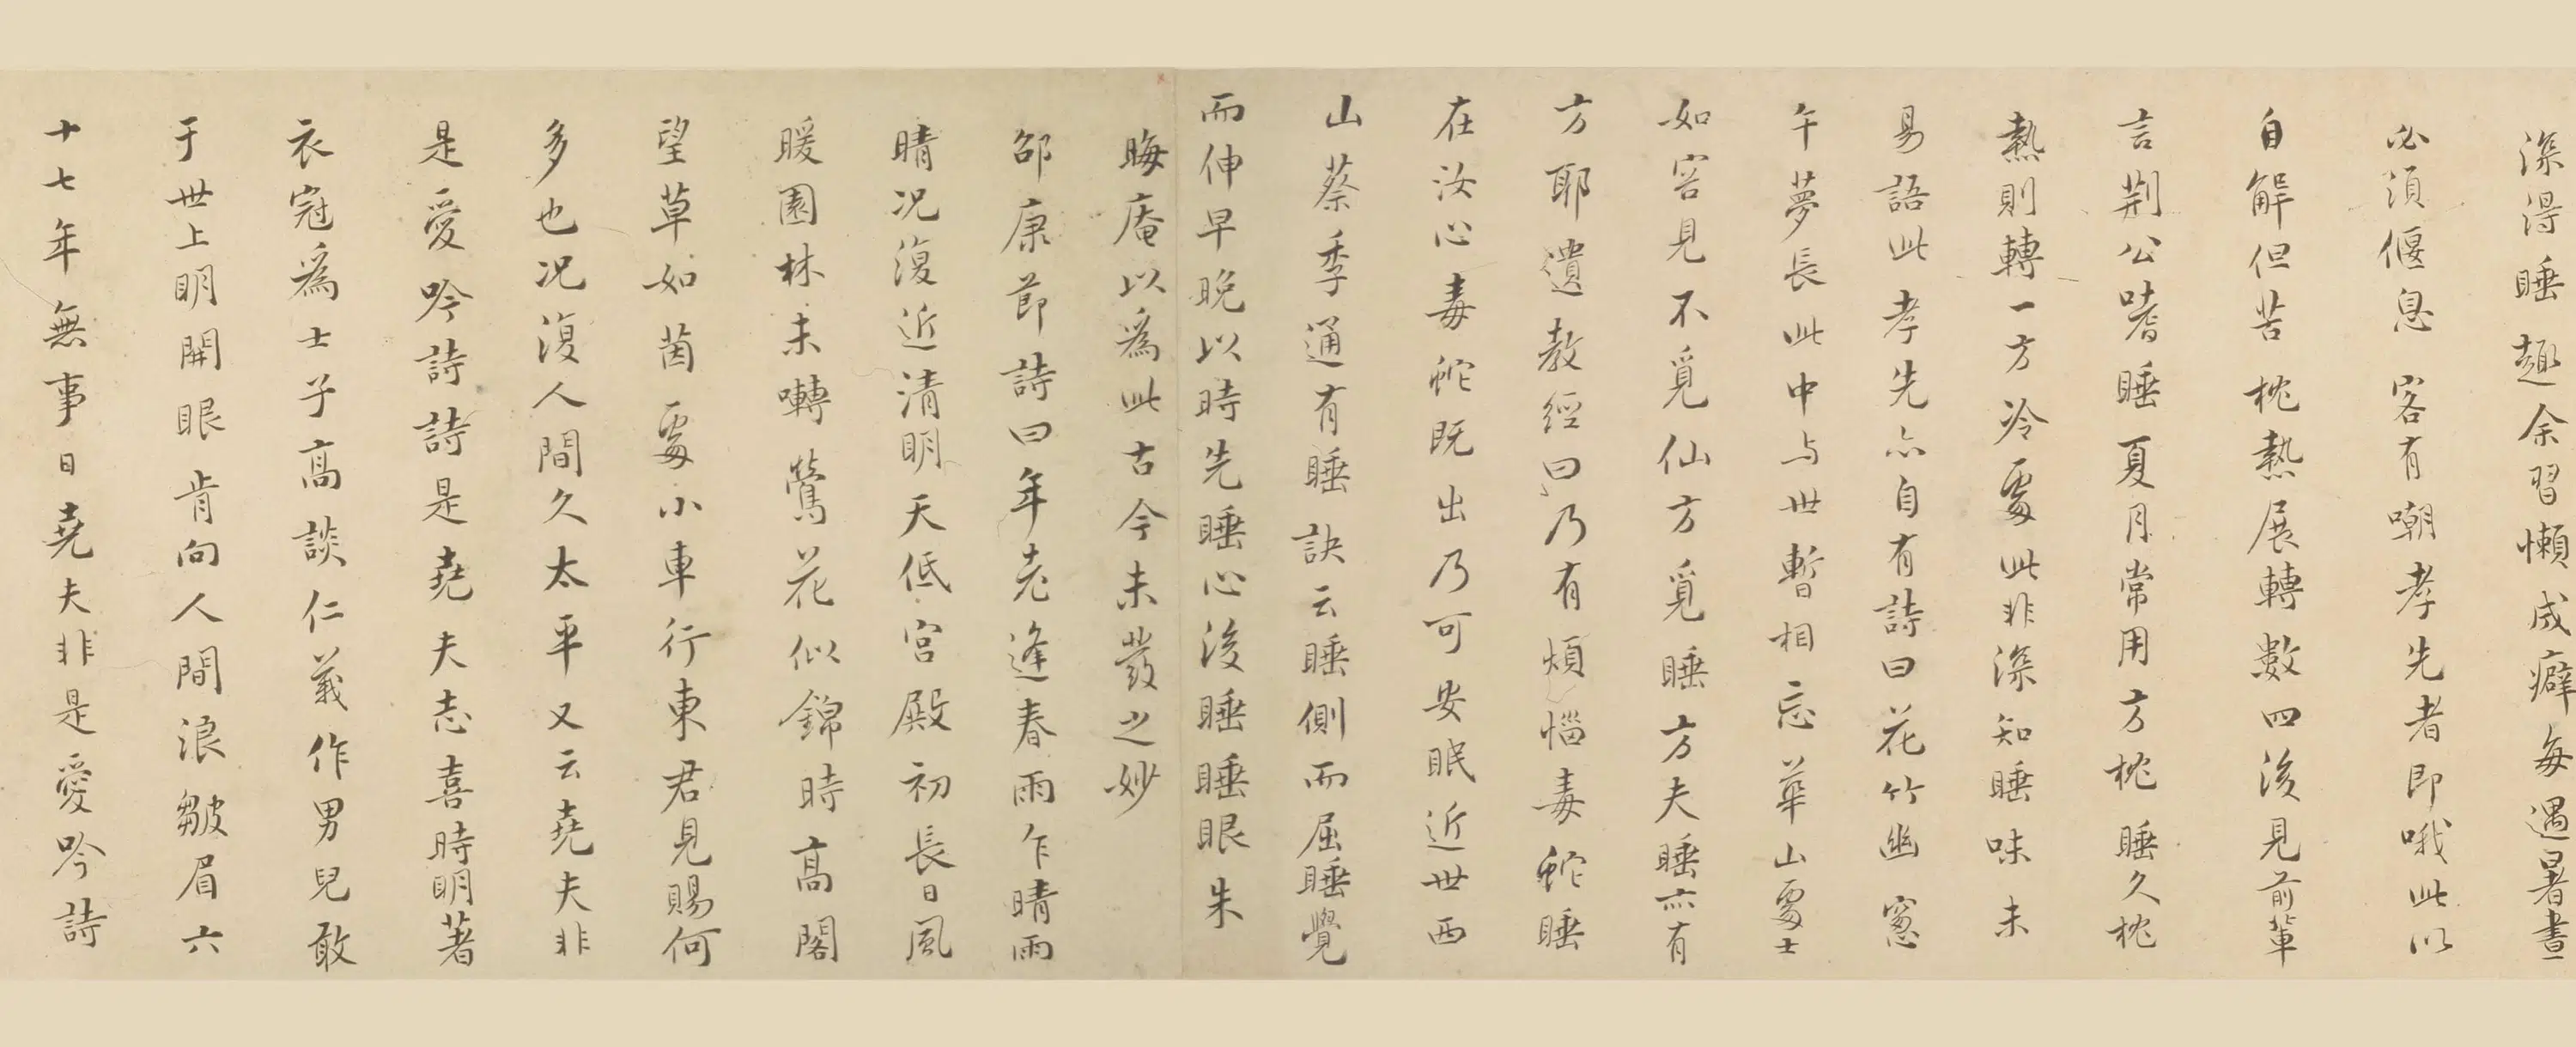 深得睡趣余習懶成癖每遇暑晝
必須偃息客有嘲孝先者即哦此以
自解但苦枕熱展轉數四後見前輩
言荆公嗜睡夏月常用方枕睡久枕
熱則轉一方冷處此非深知睡味未
易語此孝先亦自有詩曰花竹幽窓
午夢長此中与世暫相忘華山處士
如容見不覓仙方覓睡方夫睡亦有
方耶遺教經曰乃有煩惱毒蛇睡
在汝心毒蛇既出乃可安眠近世西
山蔡季通有睡訣云睡側而屈睡覺
而伸早晚以時先睡心後睡睡眼朱
晦庵以為此古今未發之妙
邵康節詩曰年老逢春雨乍晴雨
晴况復近清明天低宫殿初長日風
暖園林未囀鶯花似錦時高閣
望草如茵處小車行東君見賜何
多也况復人間久太平又云堯夫非
是愛吟詩詩是堯夫志喜時明著
衣冠為士子高談仁義作男兒敢
于世上明開眼肯向人間浪皺眉六
十七年無事日堯夫非是愛吟詩